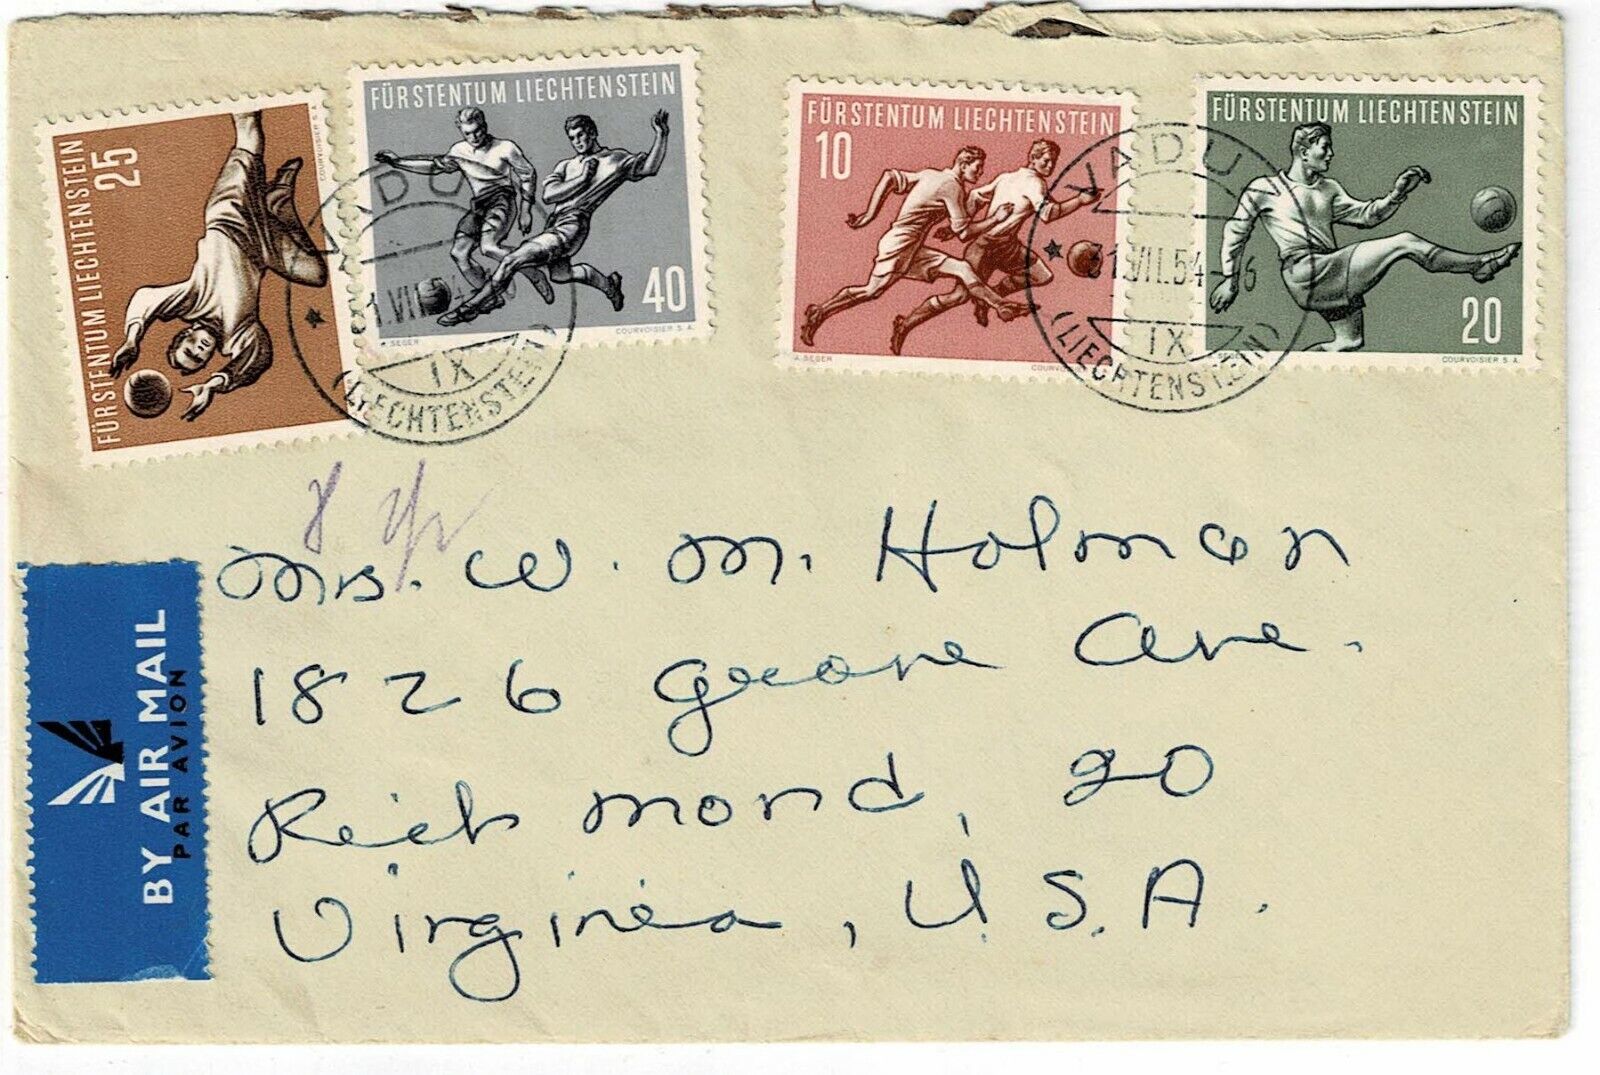 FÜRSTENTUM LIECHTENSTEIN
25
COURVOISIER S.A.
FÜRSTENTUM LIECHTENSTEIN
40
A. SEGER
COURVOISIER S.A.
VADUZ
VII.54
IX
(LIECHTENSTEIN)
FÜRSTENTUM LIECHTENSTEIN
10
A. SEGER
FÜRSTENTUM LIECHTENSTEIN
20
SEGER
COURVOISIER S.A.
VADUZ
31.VII.54-6
IX
(LIECHTENSTEIN)
BY AIR MAIL
PAR AVION
Mrs. W. M. Holman
1826 Grove Ave.
Richmond, 20
Virginia, U.S.A.